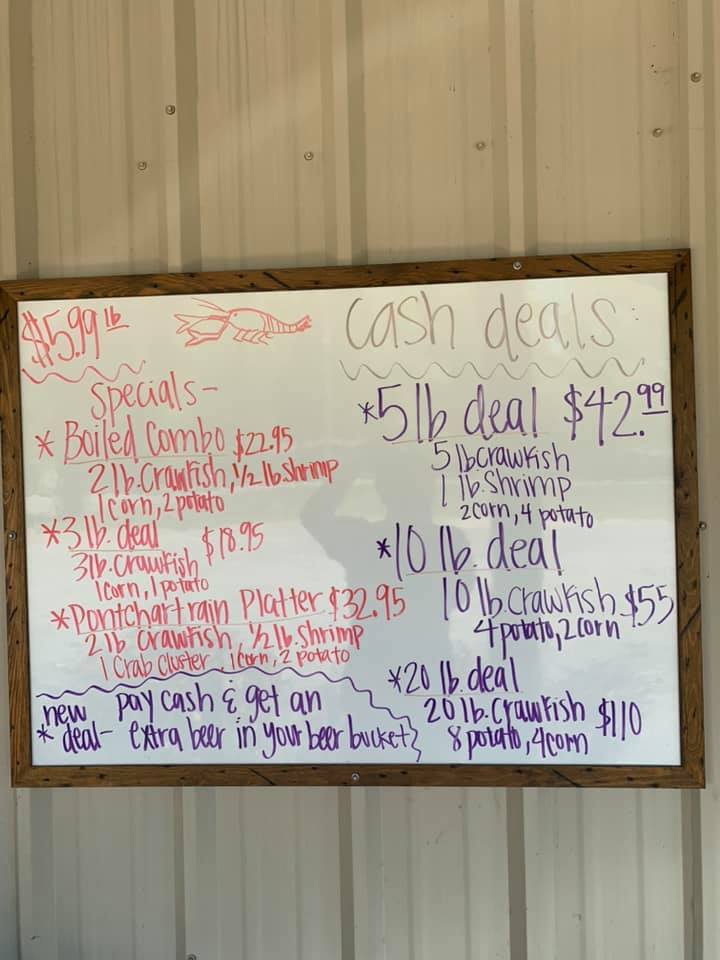 $5.99 lb
Specials-
* Boiled Combo $22.95
2 lb. Crawfish, 1/2 lb. Shrimp
1 corn, 2 potato
* 3 lb. deal $18.95
3 lb. Crawfish
1 corn, 1 potato
* Pontchartrain Platter $32.95
2 lb Crawfish, 1/2 lb. Shrimp
1 Crab Cluster, 1 corn, 2 potato
new pay cash & get an
* deal- extra beer in your beer bucket
Cash deals:
* 5 lb deal $42.99
5 lb crawfish
1 lb. Shrimp
2 corn, 4 potato
* 10 lb. deal
10 lb. Crawfish $55
4 potato, 2 corn
* 20 lb. deal
20 lb. Crawfish $110
8 potato, 4 corn